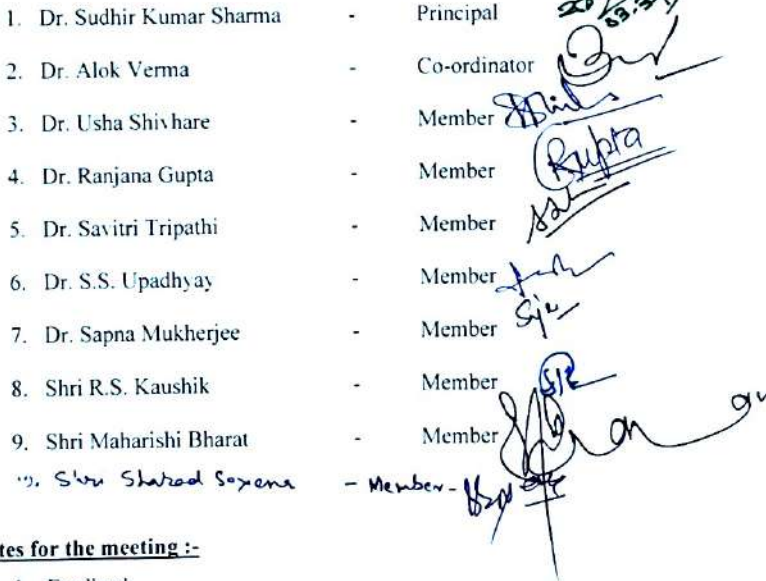 1. Dr. Sudhir Kumar Sharma - Principal
2. Dr. Alok Verma - Co-ordinator
3. Dr. Usha Shivhare - Member
4. Dr. Ranjana Gupta - Member Rupta
5. Dr. Savitri Tripathi - Member
6. Dr. S.S. Upadhyay - Member
7. Dr. Sapna Mukherjee - Member
8. Shri R.S. Kaushik - Member
9. Shri Maharishi Bharat - Member
Shri Sharad Saxena - Member -
tes for the meeting :-